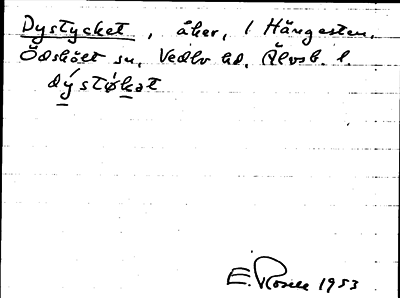 Dystycket, åker, 1 Hängesten,
Ödsköлt sn, Vedbo hd, Älvsb. l.
dýstykət
E. Rosell 1953